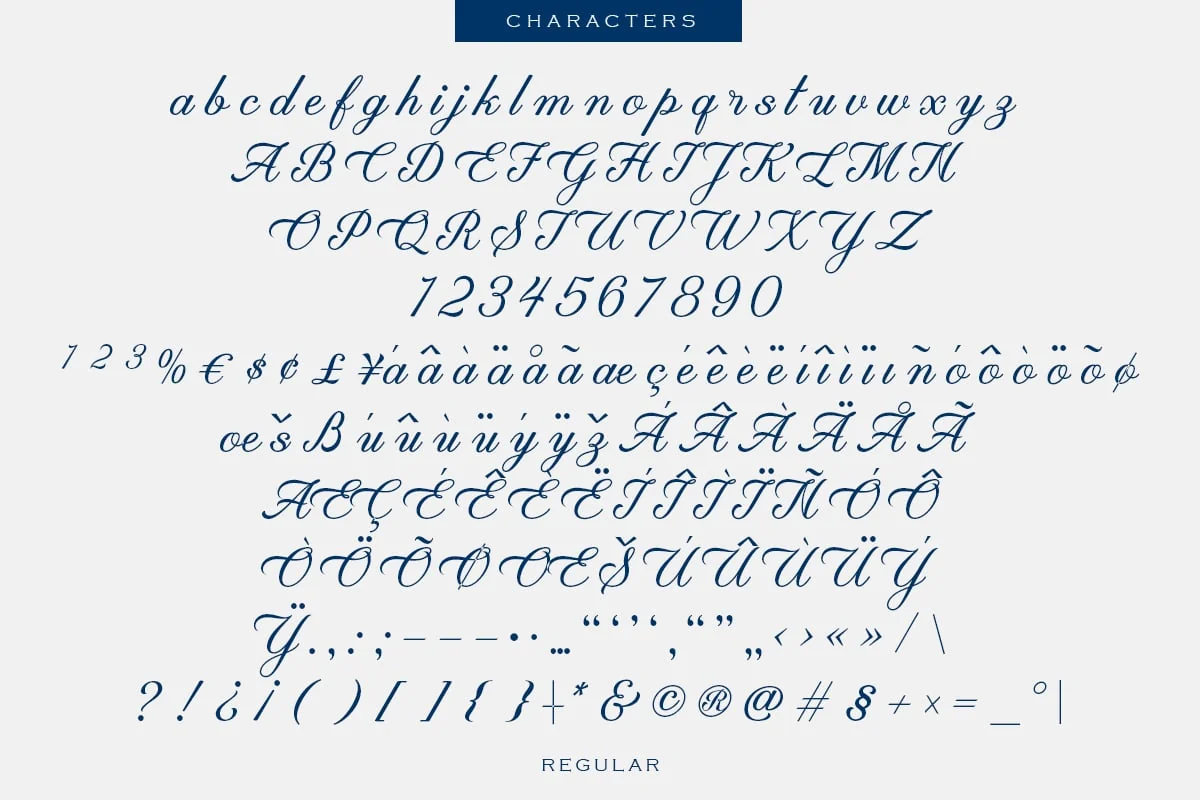 CHARACTERS
a b c d e f g h i j k l m n o p q r s t u v w x y z
A B C D E F G H I J K L M N
O P Q R S T U V W X Y Z
1 2 3 4 5 6 7 8 9 0
¹ ² ³ % € $ ¢ £ ¥ á â à ä å ã æ ç é ê è ë í î ì ï ı ñ ó ô ò ö õ ø
œ š ß ú û ù ü ý ÿ ž Á Â À Ä Å Ã
Æ Ç É Ê È Ë Í Î Ì Ï Ñ Ó Ô
Ò Ö Õ Ø Œ Š Ú Û Ù Ü Ý
Ÿ . , : ; - – — • · … “ ‘ ’ ‘ , “ ” „ ‹ › « » / \
? ! ¿ ¡ ( ) [ ] { } † * & © ® @ # § + × = _ ° |
REGULAR